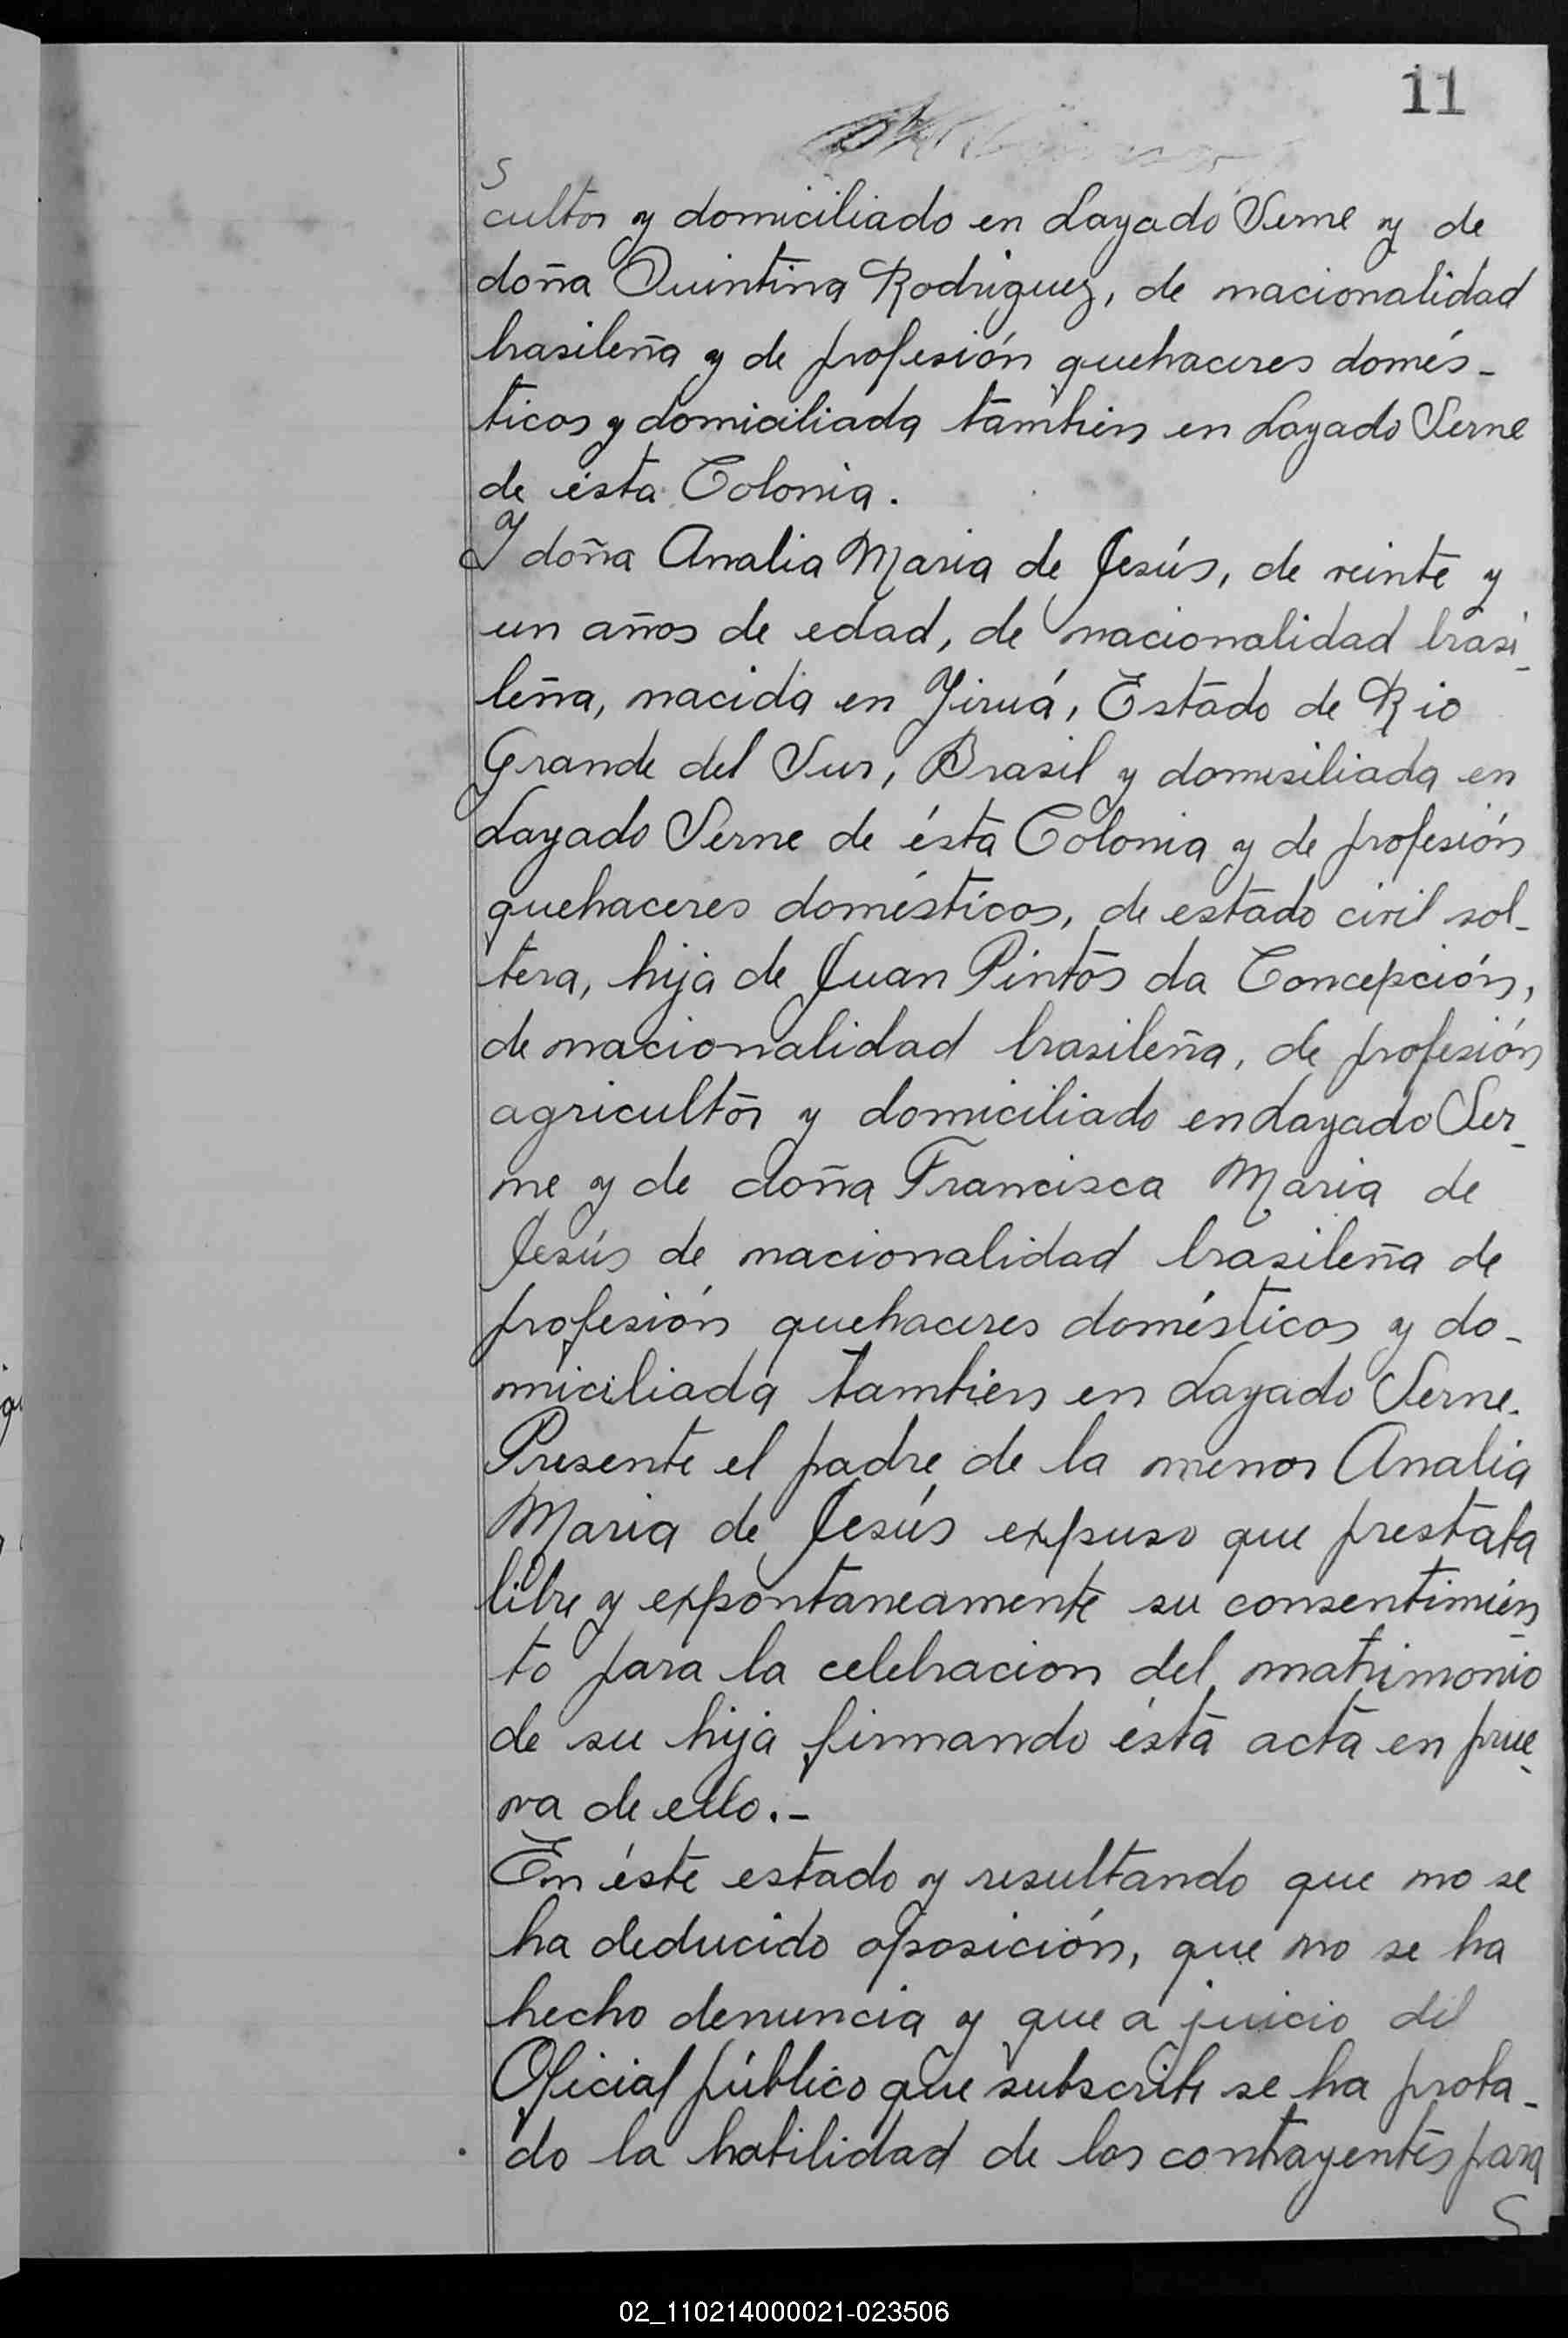 11
S
cultor y domiciliado en Layado Serne y de
doña Quintina Rodriguez, de nacionalidad
brasileña y de profesión quehaceres domés-
ticos y domiciliada tambien en Layado Serne
de ésta Colonia.
Y doña Analia Maria de Jesús, de veinte y
un años de edad, de nacionalidad brasi-
leña, nacida en Yiruá, Estado de Rio
Grande del Sur, Brasil y domisiliada en
Layado Serne de ésta Colonia y de profesión
quehaceres domésticos, de estado civil sol-
tera, hija de Juan Pintos da Concepción,
de nacionalidad brasileña, de profesión
agricultor y domiciliado en Layado Ser-
ne y de doña Francisca Maria de
Jesús de nacionalidad brasileña de
profesión quehaceres domésticos y do-
miciliada tambien en Layado Serne.
Presente el padre de la menor Analia
Maria de Jesús expuso que prestaba
libre y expontaneamente su consentimien
to para la celebracion del matrimonio
de su hija firmando ésta acta en prue-
va de ello.-
En éste estado y resultando que no se
ha deducido oposición, que no se ha
hecho denuncia y que a juicio del
Oficial público que subscribe se ha proba-
do la habilidad de los contrayentes para
S
02_110214000021-023506